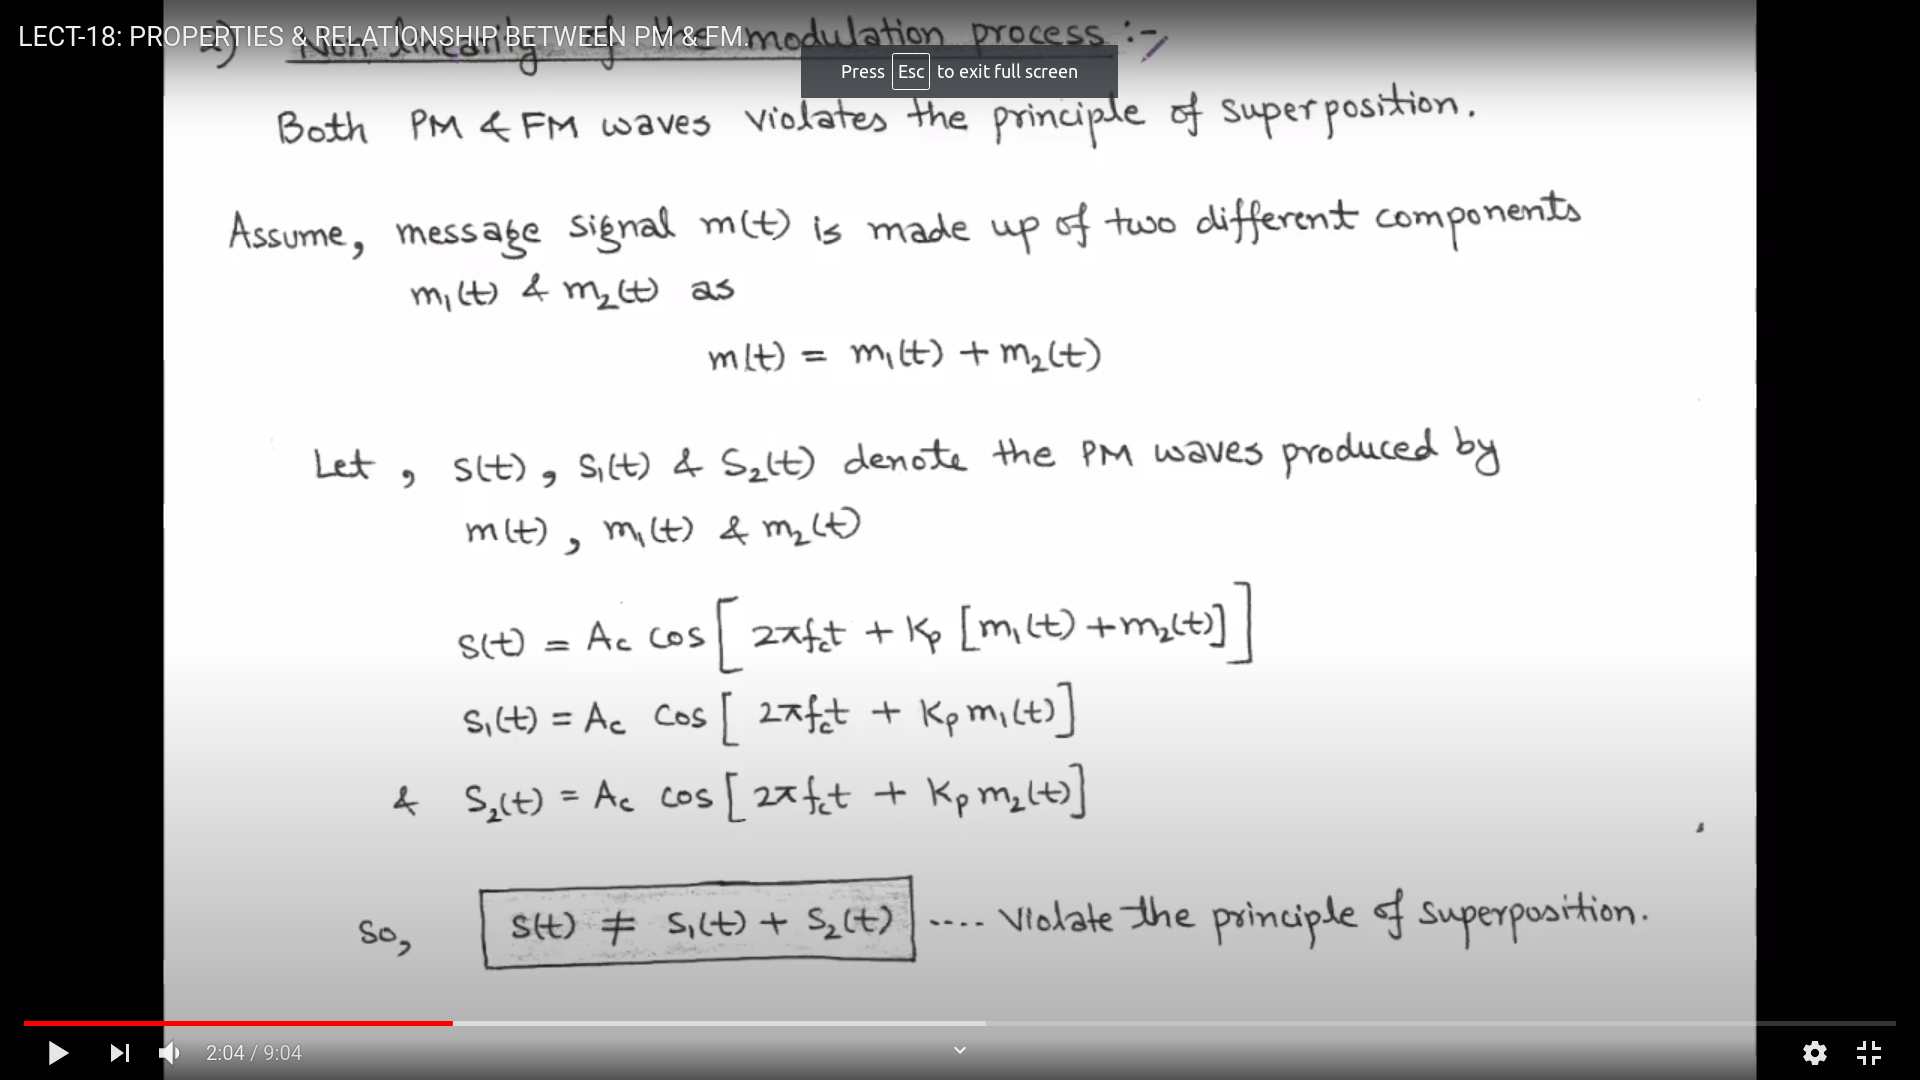 LECT-18: PROPERTIES & RELATIONSHIP BETWEEN PM & FM.
2) Non-linearity of the modulation process :-
Press Esc to exit full screen
Both PM & FM waves violates the principle of superposition.
Assume, message signal m(t) is made up of two different components
m₁(t) & m₂(t) as
m(t) = m₁(t) + m₂(t)
Let, s(t), s₁(t) & s₂(t) denote the PM waves produced by
m(t), m₁(t) & m₂(t)
s(t) = Ac cos [2πfct + Kp [m₁(t) + m₂(t)]]
s₁(t) = Ac cos [2πfct + Kp m₁(t)]
& s₂(t) = Ac cos [2πfct + Kp m₂(t)]
So, s(t) ≠ s₁(t) + s₂(t) .... Violate the principle of superposition.
2:04 / 9:04